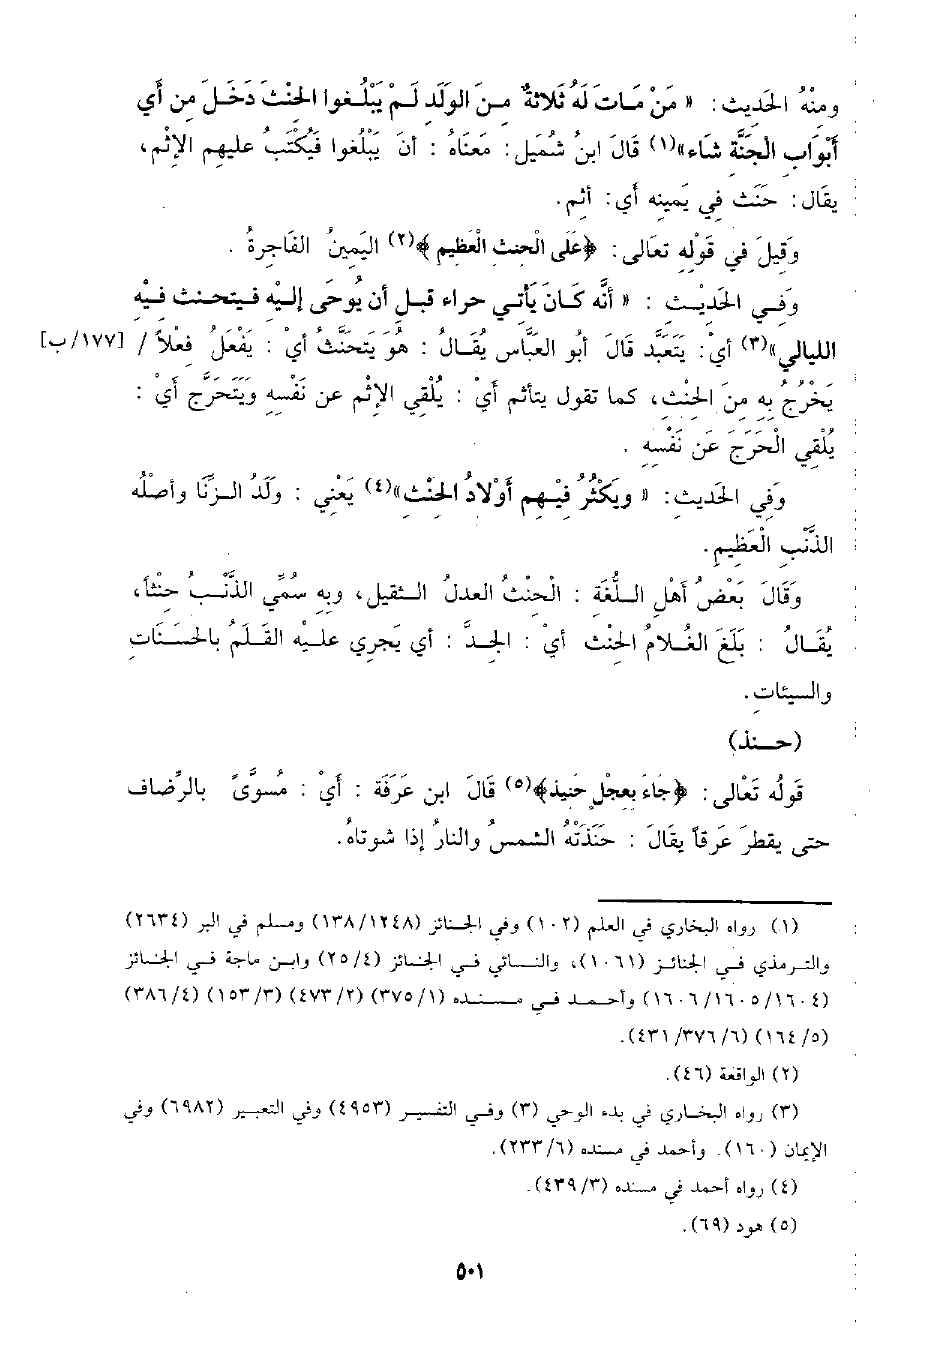 ومنْهُ الحَديث: « مَنْ مَاتَ لَهُ ثَلاثةٌ مِنَ الوَلَدِ لَمْ يَبْلُغوا الحِنْثَ دَخَلَ من أَي
أَبْوَابِ الْجَنَّةِ شَاء»(١) قَالَ ابنُ شُميل: مَعنَاهُ : أنَ يَبْلُغوا فَيُكْتَبُ عليهِم الإثْم،
يقَال: حَنَثَ فِي يَمينِه أَي: أثم.
وَقِيلَ في قَوْلِه تعَالى: ﴿عَلَى الْحِنثِ الْعَظِيمِ﴾(٢) اليَمينُ الفَاجِرةُ .
وَفِي الحَديْث : « أنَّه كَانَ يَأتي حراء قبل أن يُوحَى إليْه فيتحنث فِيْهِ
الليالي»(٣) أيْ: يَتَعَبَّد قَالَ أبُو العبَّاس يُقَالُ : هُوَ يَتَحنَّثُ أيْ : يَفْعَلُ فعْلاً / [١٧٧/ب]
يَخْرُجُ بِه مِنَ الحِنْثِ، كما تقول يتأثم أيْ : يُلْقِي الإثْم عن نَفْسِه ويَتَحَرَّج أيْ :
يُلْقِي الْحَرَجَ عَن نَفْسِه .
وَفِي الحَدِيث: « ويَكْثُرُ فِيْهِم أوْلادُ الحِنْث»(٤) يَعْنِي : ولَدُ الزِّنَا وأصلُه
الذَّنْبِ الْعَظِيمِ.
وَقَالَ بَعْضُ أهْلِ اللُّغَة : الْحِنْثُ العدلُ الثقيل، وبِهِ سُمِّي الذَّنْبُ حنْثاً،
يُقَالُ : بَلَغَ الغُلامُ الحِنْث أيْ : الجدَّ : أي يَجري عليْه القَلَمُ بالحَسَنَاتِ
والسيئاتِ.
(حنذ)
قولُه تَعْالى: ﴿جَاءَ بِعِجْلٍ حَنِيذٍ﴾(٥) قَالَ ابن عَرَفَة : أيْ : مُسوَّىً بالرِّضاف
حتى يقطرَ عَرقاً يقالَ : حَنَذَتْهُ الشمسُ والنارُ إذا شوتاهُ.
(١) رواه البخاري في العلم (١٠٢) وفي الجنائز (١٣٨/١٢٤٨) ومسلم في البر (٢٦٣٤)
والترمذي في الجنائز (١٠٦١)، والنسائي في الجنائز (٢٥/٤) وابن ماجة في الجنائز
(١٦٠٦/١٦٠٥/١٦٠٤) وأحمد في مسنده (٣٧٥/١) (٤٧٣/٢) (١٥٣/٣) (٣٨٦/٤)
(١٦٤/٥) (٤٣١/٣٧٦/٦).
(٢) الواقعة (٤٦).
(٣) رواه البخاري في بدء الوحي (٣) وفي التفسير (٤٩٥٣) وفي التعبير (٦٩٨٢) وفي
الإيمان (١٦٠). وأحمد في مسنده (٢٣٣/٦).
(٤) رواه أحمد في مسنده (٤٣٩/٣).
(٥) هود (٦٩).
٥٠١